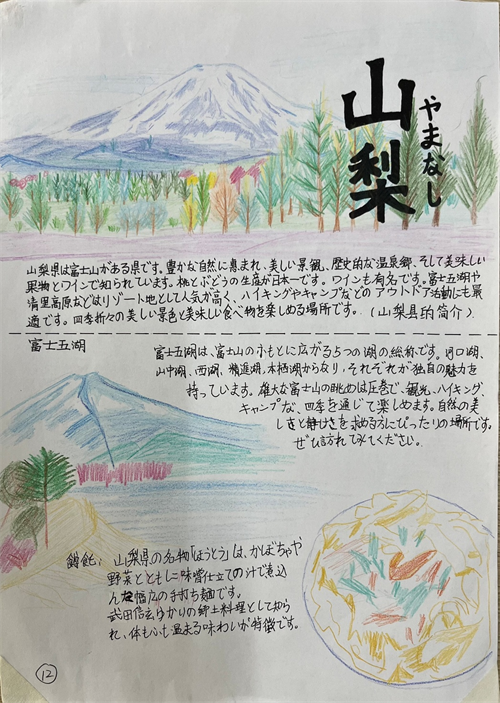 山梨
やまなし
山梨県は富士山がある県です。豊かな自然に恵まれ、美しい景観、歴史的な温泉郷、そして美味しい
果物とワインで知られています。桃とぶどうの生産が日本一です。ワインも有名です。富士五湖や
清里高原などはリゾート地として人気が高く、ハイキングやキャンプなどのアウトドア活動にも最
適です。四季折々の美しい景色と美味しい食べ物を楽しめる場所です。(山梨县的简介)
富士五湖
富士五湖は、富士山のふもとに広がる5つの湖の総称です。河口湖、
山中湖、西湖、精進湖、本栖湖からなり、それぞれが独自の魅力を
持っています。雄大な富士山の眺めは圧巻で、観光、ハイキング、
キャンプな、四季を通じて楽しめます。自然の美
しさと静けさを求めるろにぴったりの場所です。
ぜひ訪れてみてください。
餺飥:山梨県の名物「ほうとう」は、かぼちゃや
野菜とともに味噌仕立ての汁で煮込
んだ幅広の手打ち麺です。
武田信玄ゆかりの郷土料理として知ら
れ、体も心も温まる味わいが特徴です。
12